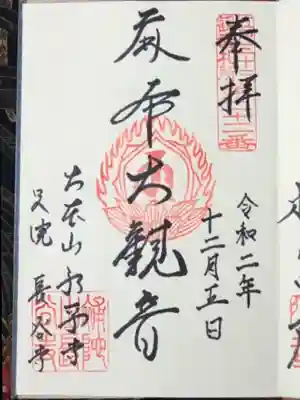 奉拝
令和二年
十二月五日
麻布大觀音
大本山永平寺
別院 長谷寺